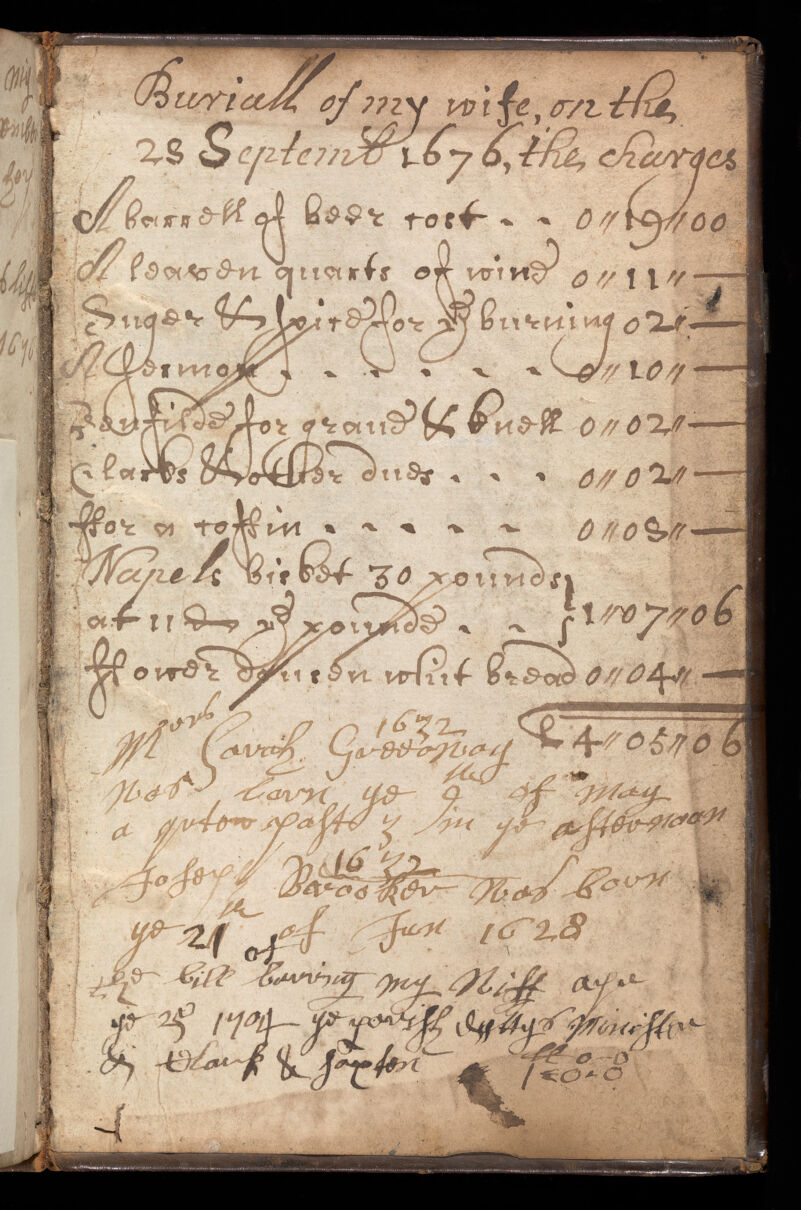 Buriall of my wife, on the
23 Septemb 1676, the charges
A barrell of beer cost - - 0"19"00
A leaven quarts of wine 0"11"—
Suger & spice for ye burning 02"—
A sermon - - - - - - 0"10"—
for grave & knell 0"02"—
Clarks & other dues - - - 0"02"—
ffor a coffin - - - - - 0"08"—
Napels bisket 30 pounds
at 11d ye pounde - - 1"07"06
ffower doucen whit bread 0"04"—
£ 4"05"06
1632
Sarah Greenway
was born ye 9th of may
a qutor past 3 in ye afternoon
1632
Joseph Brooker was born
ye 21th of Jun 1628
ye bill of burring my Wiff
ye 25 1704 ye parish dutys Minister
& Clark & saxton
1=0=0